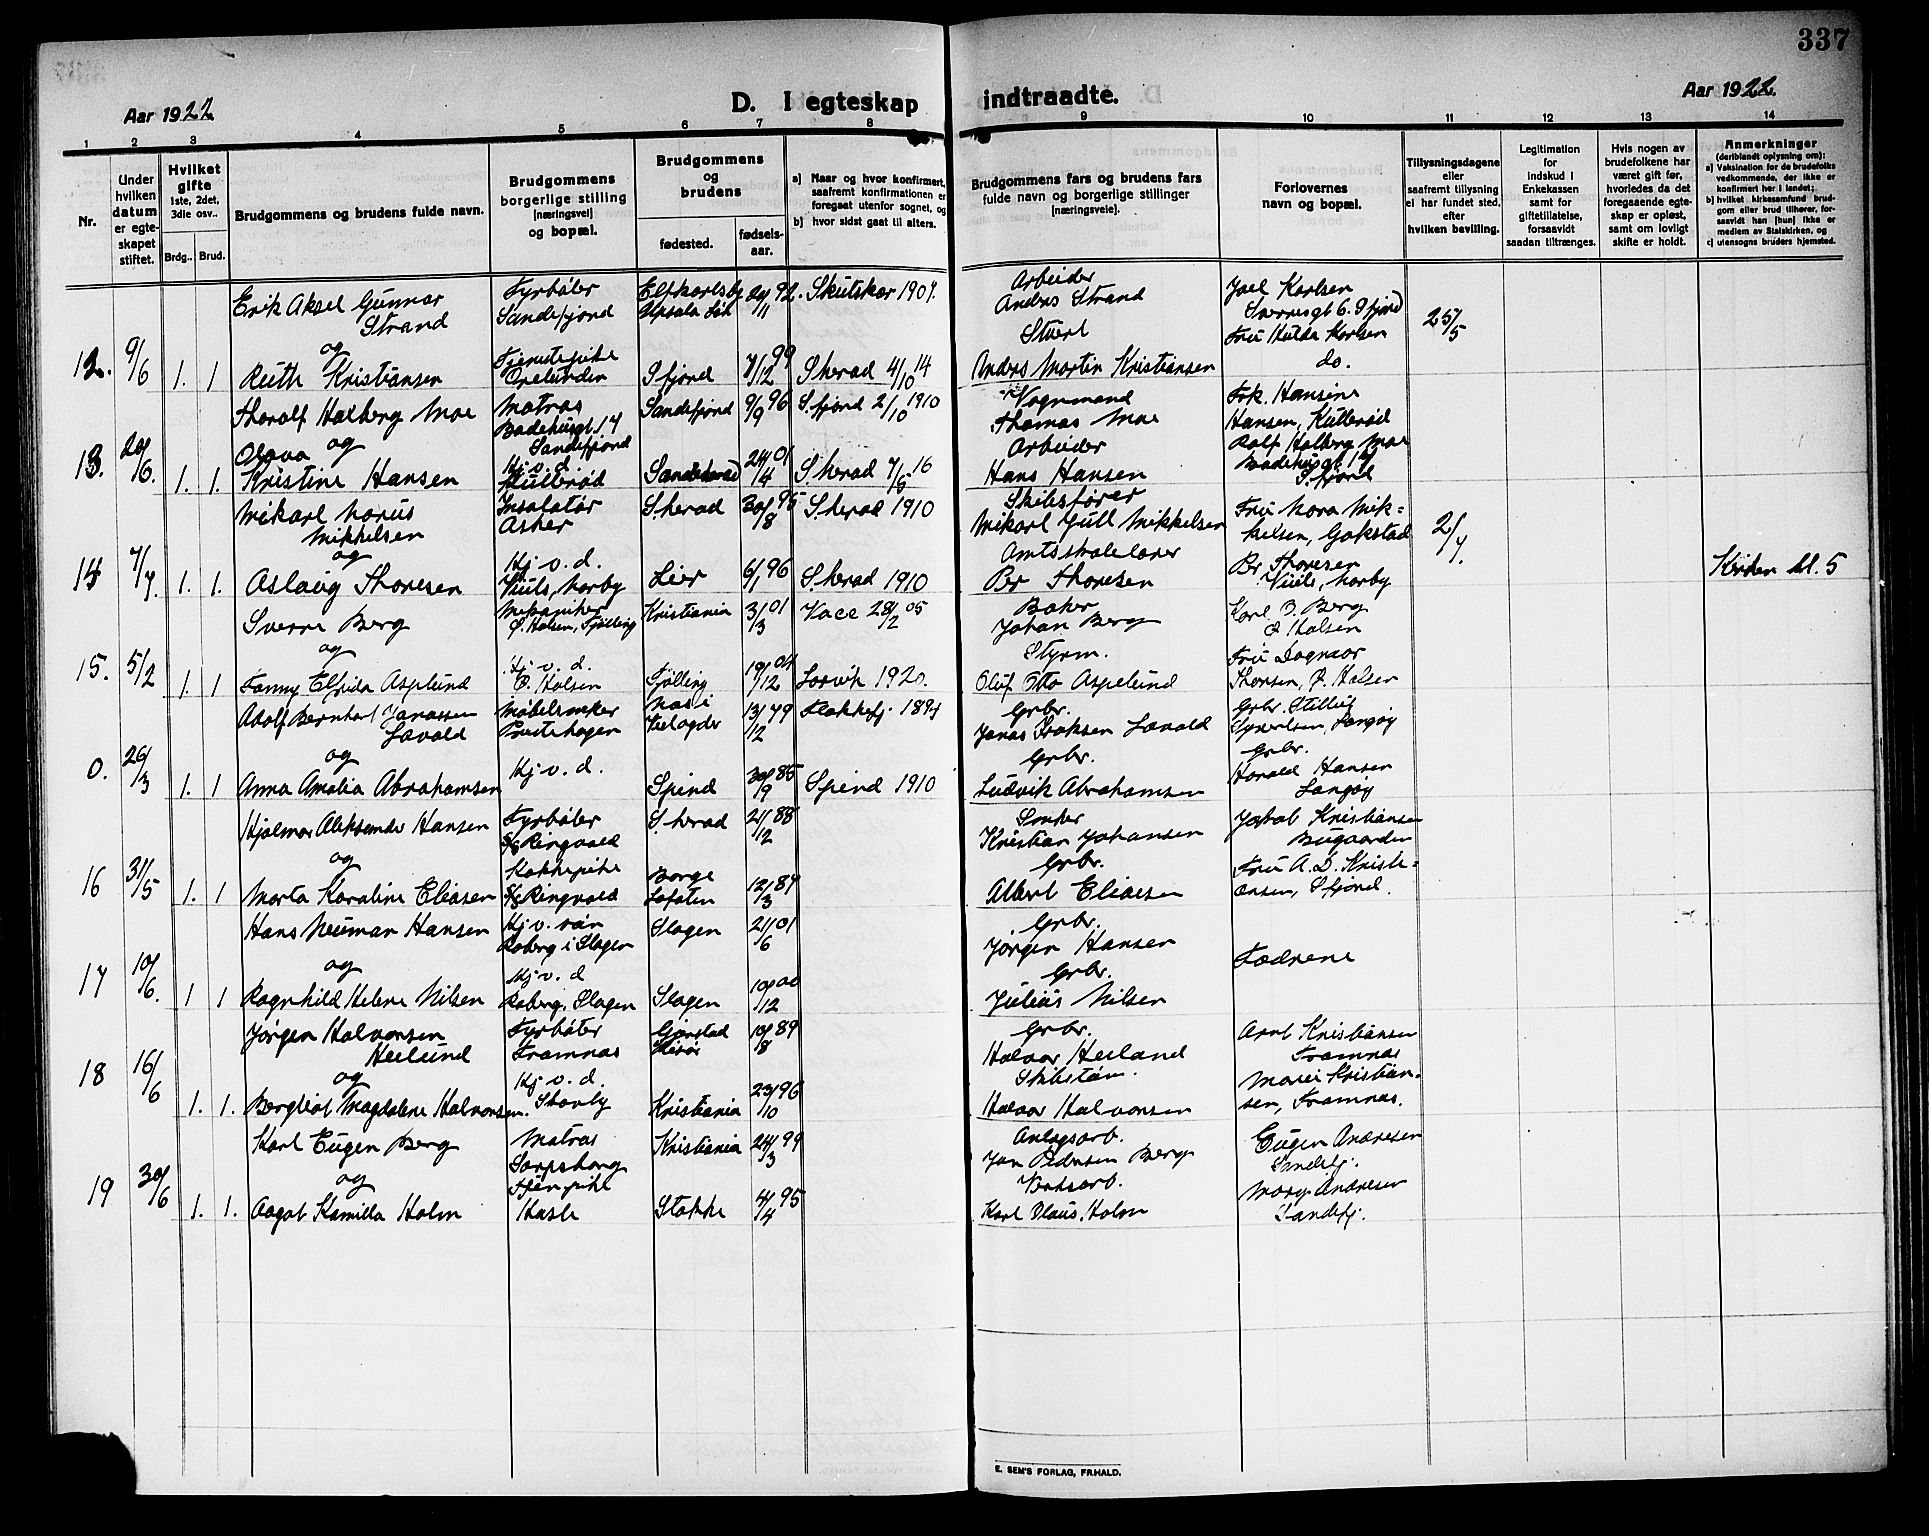 337
Aar 1922
D. I egteskap indtraadte.
Aar 1922.
1 2 3 4 5 6 7 8 9 10 11 12 13 14
Nr.
Under hvilken datum er egteskapet stiftet.
Hvilket gifte 1ste, 2det, 3die osv..
Brdg.. Brud.
Brudgommens og brudens fulde navn.
Brudgommens borgerlige stilling [næringsvei] og bopæl.
Brudgommens og brudens
fødested.
fødsels-aar.
a) Naar og hvor konfirmert, saafremt konfirmationen er foregaat utenfor sognet, og
b) hvor sidst gaat til alters.
Brudgommens fars og brudens fars fulde navn og borgerlige stillinger [næringsveie].
Forlovernes navn og bopæl.
Tillysningsdagene eller saafremt tillysning ei har fundet sted, efter hvilken bevilling.
Legitimation for indskud i Enkekassen samt for giftetillatelse, forsaavidt saadan tiltrænges.
Hvis nogen av brudefolkene har været gift før, hvorledes da det foregaaende egteskap er opløst, samt om lovligt skifte er holdt.
Anmerkninger
(deriblandt oplysning om):
a) Vaksination for de brudefolks vedkommende, der ikke er konfirmert her i landet;
b) hvilket kirkesamfund brudgom eller brud tilhører, forsaavidt han [hun] ikke er medlem av Statskirken, og
c) utensogns bruders hjemsted.
Erik Aksel Gunnar Strand Fyrbøter Sandefjord Elfkarleby Upsala Län 20/11 92. Skutskär 1907. Arbeider Anders Strand Joel Karlsen Sverresgt 6. Sfjord
12. 9/6 1. 1 og Ruth Kristiansen Tjenestepike Orelunden Sfjord 7/12 99 S.herad 4/10 14 Anders Martin Kristiansen Fru Hulda Karlsen do. 25/5
Thoralf Halberg Moe Matros Badehusgt. 14 Sandefjord Sandefjord 9/9 96 S.fjord 2/10 1910 Vognmand Thomas Moe Frk. Hansine Hansen, Kullerød
13. 20/6. 1. 1. og Olava Kristine Hansen Hj. v. d. Kullerød Sandeherad 24/4 01 S.herad 7/5 16 Arbeider Hans Hansen Rolf Halberg Moe Badehusgt. 14 S.fjord
Mikael Marius Mikkelsen Insolatør Asker S.herad 30/8 95 S.herad 1910 Skibsfører Mikael Juell Mikkelsen Fru Nora Mikkelsen, Gokstad
14 7/7. 1. 1. og Aslaug Thoresen Hj. v. d. Lier 6/1 96 S.herad 1910 Amtsskolelærer Per Thoresen Per Thoresen 2/7. Kirken kl. 5
Sverre Berg Mekaniker Ø. Halsen, Tjølling Kristiania 3/3 01 28/2 05 Baker Johan Berg Karl B. Berg Ø Halsen
15. 5/2 1. 1 og Fanny Elfrida Aspelund Hj. v. d. Ø. Halsen Tjølling 19/12 04 Larvik 1920. Styrm. Oluf Otto Aspelund Fru Dagmar Thorsen, Ø. Halsen
Adolf Bernhard Jonassen Lavold Møbelsnekker Prestehagen 13/12 79 Flekkefj. 1894 Grbr. Jonas Lavold Grbr. Syvertsen, Langøy
0. 26/3 1. 1 og Anna Amalia Abrahamsen Hj. v. d. Spind 30/9 85 Spind 1910 Grbr. Ludvik Abrahamsen Grbr. Harald Hansen Langøy
Hjalmar Aleksander Hansen Fyrbøter S/S Ringvald S.herad 21/12 88 Snekker Kristian Johansen Jakob Kristiansen Bugaarden
16 31/5 1. 1 og Marta Karoline Eliasen Kokkepike S/S Ringvald Borge Lofoten 12/3 87 Grbr. Albert Eliasen Fru A. D. Kristiansen, Sfjord.
Hans Neuman Hansen Hj. v. søn Roberg i Slagen Slagen 21/6 01 Grbr. Jørgen Hansen
17 10/6. 1 1 og Ragnhild Helene Nilsen Hj. v. d Roberg, Slagen Slagen 10/12 00 Grbr. Julius Nilsen Fædrene
Jørgen Halvorsen Heilund Fyrbøter Framnæs 10/8 89 Grbr. Halvor Heiland Arnt Kristiansen Framnæs
18 16/6 1. 1. og Bergliot Magdalene Halvorsen. Hj. v. d. Skovly Kristiania 23/10 96 Skibstøm. Halvor Halvorsen Marie Kristiansen, Framnæs.
Karl Eugen Berg Matros Sarpsborg Kristiania 24/3 99 Anlægsarb. Jon Pedersen Berg Eugen Andresen Sandefj.
19 30/6 1. 1. og Aagot Kamilla Holm Tjen.pike Hasle Stokke 4/4 95 Verksarb. Karl Olaus Holm Mary Andresen Sandefj.
E. SEM'S FORLAG, FR.HALD.